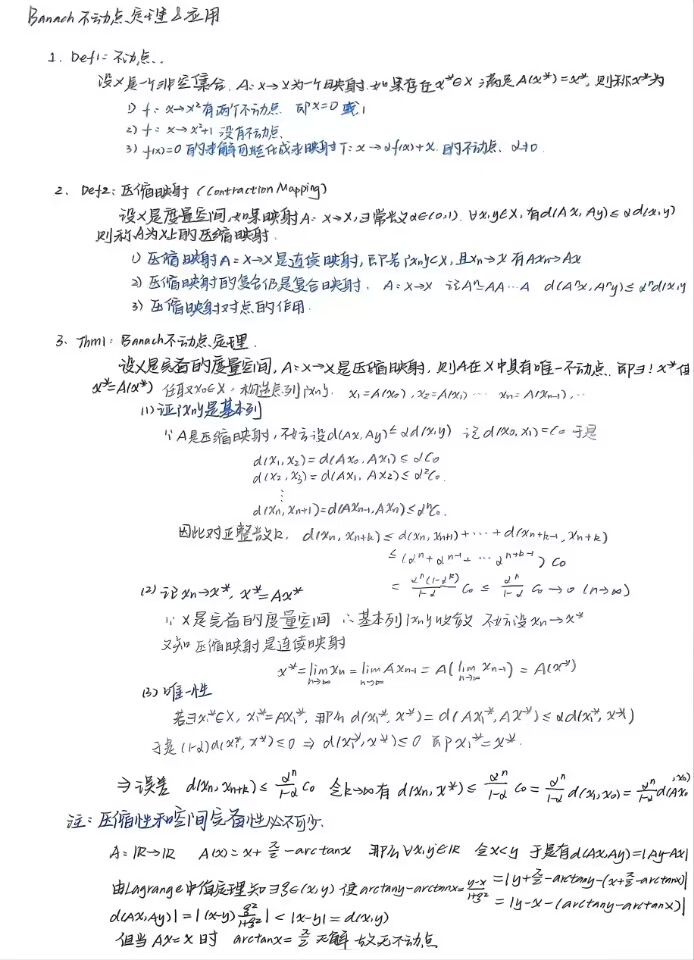 Banach不动点定理&应用
1. Def1: 不动点..
设X是一个非空集合. A: X→X为一个映射. 如果存在x*∈X 满足A(x*)=x*, 则称x*为
1) f: x→x²有两个不动点 即x=0 或1
2) f: x→x²+1 没有不动点.
3) f(x)=0 的求解可转化成求映射T: x→αf(x)+x. 的不动点. α≠0.
2. Def2: 压缩映射 (Contraction Mapping)
设X是度量空间, 如果映射A: X→X, ∃常数α∈(0,1). ∀x,y∈X, 有d(Ax, Ay)≤αd(x,y)
则称A为X上的压缩映射.
1) 压缩映射A: X→X是连续映射, 即若{xn}⊂X, 且xn→x 有Axn→Ax
2) 压缩映射的复合仍是复合映射. A: X→X 记Aⁿ=AA…A d(Aⁿx, Aⁿy)≤αⁿd(x,y
3) 压缩映射对点的作用.
3. Thm1: Banach不动点定理.
设X是完备的度量空间, A: X→X是压缩映射, 则A在X中具有唯一不动点. 即∃! x*使
x*=A(x*) 任取x0∈X. 构造点列{xn}. x1=A(x0), x2=A(x1) … xn=A(xn-1), …
(1) 证{xn}是基本列
∵A是压缩映射, 不妨设d(Ax, Ay)≤αd(x,y) 记d(x0, x1)=C0 于是
d(x1, x2)=d(Ax0, Ax1)≤αC0
d(x2, x3)=d(Ax1, Ax2)≤α²C0.
⋮
d(xn, xn+1)=d(Axn-1, Axn)≤αⁿC0.
因此对正整数k. d(xn, xn+k)≤d(xn, xn+1)+⋯+d(xn+k-1, xn+k)
≤(αⁿ+αⁿ⁻¹+⋯αⁿ⁺ᵏ⁻¹) C0
= αⁿ(1-αᵏ)/1-α C0 ≤ αⁿ/1-α C0→0 (n→∞)
(2) 记xn→x*, x*=Ax*
∵X是完备的度量空间 ∴基本列{xn}收敛 不妨设xn→x*
又知压缩映射是连续映射
x*=lim n→∞ xn=lim n→∞ Axn-1=A(lim n→∞ xn-1)=A(x*)
(3) 唯一性
若∃x1*∈X, x1*=Ax1*, 那么 d(x1*, x*)=d(Ax1*, Ax*)≤αd(x1*, x*)
于是(1-α)d(x1*, x*)≤0 ⇒ d(x1*, x*)≤0 即x1*=x*.
⇒误差 d(xn, xn+k)≤ αⁿ/1-α C0 令k→∞有 d(xn, x*)≤ αⁿ/1-α C0= αⁿ/1-α d(x1, x0)= αⁿ/1-α d(Ax0, x0)
注: 压缩性和空间完备性必不可少.
A: ℝ→ℝ A(x)=x+π/2-arctanx 那么∀x,y∈ℝ 令x<y 于是有d(Ax,Ay)=|Ay-Ax|
=|y+π/2-arctany-(x+π/2-arctanx)|
由Lagrange中值定理知∃ξ∈(x,y) 使arctany-arctanx= y-x/1+ξ² =|y-x-(arctany-arctanx)|
d(Ax,Ay)|=|(x-y) ξ²/1+ξ²|<|x-y|=d(x,y)
但当Ax=x时 arctanx=π/2无解 故无不动点